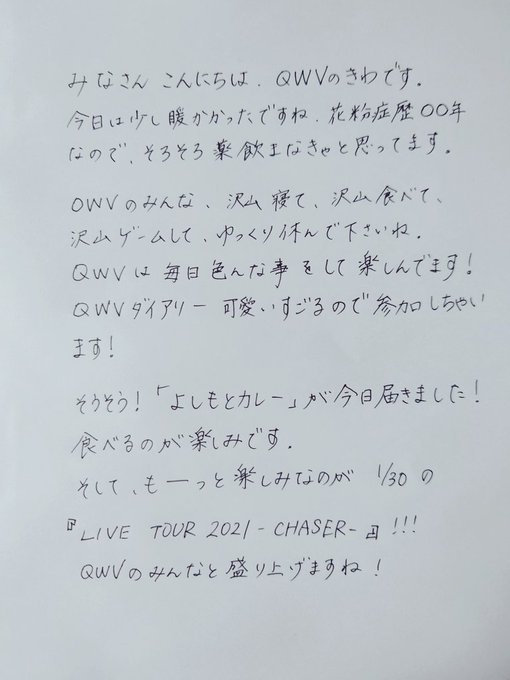 みなさん こんにちは、QWVのきわです。
今日は少し暖かかったですね、花粉症歴〇〇年
なので、そろそろ薬飲まなきゃと思ってます。
OWVのみんな、沢山寝て、沢山食べて、
沢山ゲームして、ゆっくり休んで下さいね。
QWVは毎日色んな事をして楽しんでます!
QWVダイアリー 可愛いすごるので参加しちゃい
ます!
そうそう!「よしもとカレー」が今日届きました!
食べるのが楽しみです。
そして、も一っと楽しみなのが 1/30 の
『LIVE TOUR 2021 - CHASER-』!!!
QWVのみんなと盛り上げますね!